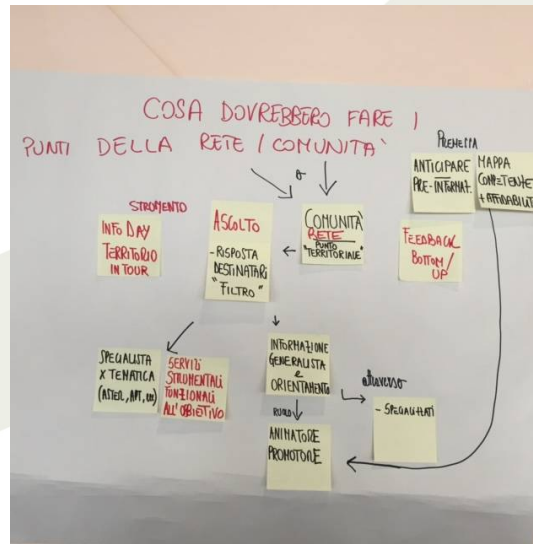 COSA DOVREBBERO FARE I
PUNTI DELLA RETE / COMUNITÀ
PREMESSA
ANTICIPARE
PRE-INFORMAT.
MAPPA
COMPETENTE
+ AFFIDABILITÀ
STRUMENTO
INFO DAY
TERRITORIO
IN TOUR
ASCOLTO
- RISPOSTA
DESTINATARI
"FILTRO"
COMUNITÀ
RETE
"PUNTO
TERRITORIALE"
FEEDBACK
BOTTOM /
UP
SPECIALISTA
X TEMATICA
(ASTER, ART,
SERVIZI
STRUMENTALI
FUNZIONALI
ALL'OBIETTIVO
INFORMAZIONE
GENERALISTA
e
ORIENTAMENTO
attraverso
- SPECIALIZZATI
RUOLO
ANIMATORE
PROMOTORE